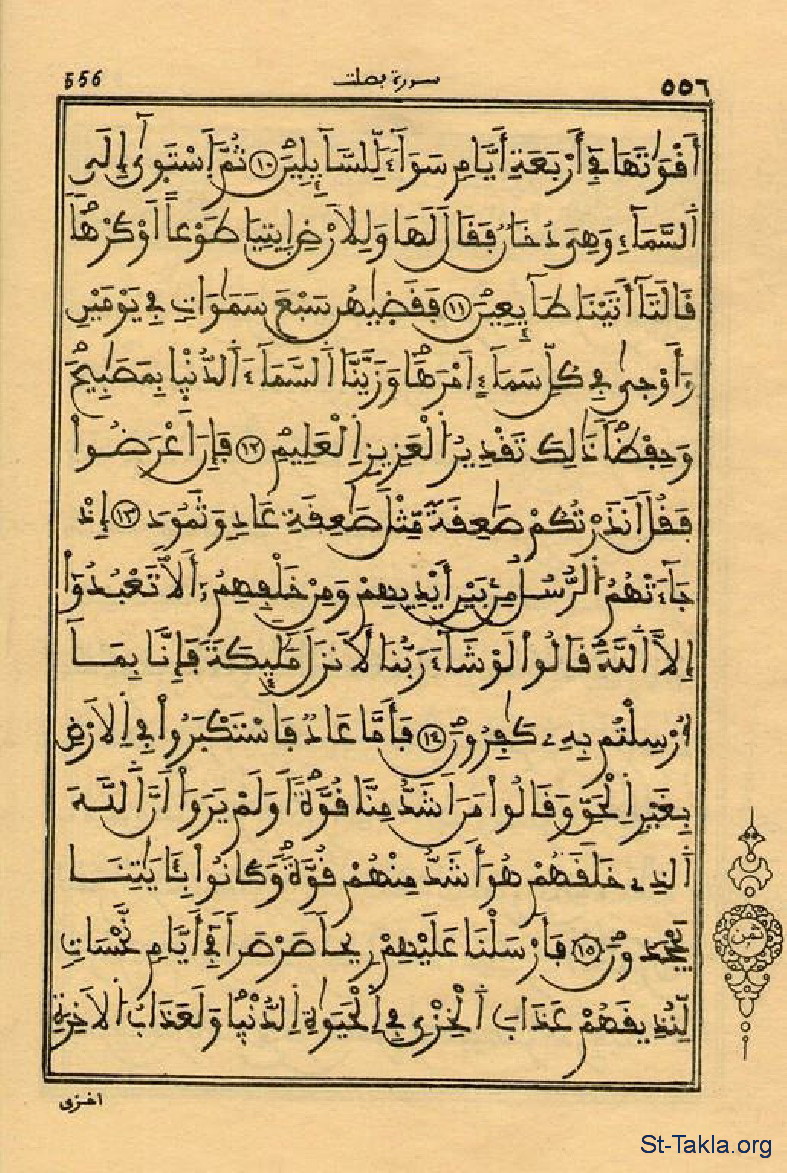 556 سورة فصلت ٥٥٦
أَقْوَاتَهَا فِي أَرْبَعَةِ أَيَّامٍ سَوَآءً لِّلسَّآئِلِينَ ١٠ ثُمَّ اَسْتَوَىٰ إِلَى
اَلسَّمَآءِ وَهِيَ دُخَانٌ فَقَالَ لَهَا وَلِلْأَرْضِ اِئْتِيَا طَوْعاً أَوْ كَرْهاً
قَالَتَآ أَتَيْنَا طَآئِعِينَ ١١ فَقَضٰيهُنَّ سَبْعَ سَمَٰوَاتٍ فِي يَوْمَيْنِ
وَأَوْحىٰ فِي كُلِّ سَمَآءٍ اَمْرَهَا وَزَيَّنَّا اَلسَّمَآءَ اَلدُّنْيَا بِمَصَٰبِيحَ
وَحِفْظاً ذَٰلِكَ تَقْدِيرُ اُلْعَزِيزِ اِلْعَلِيمِ ١٢ فَإِنَ اَعْرَضُواْ
فَقُلَ اَنذَرْتُكُمْ صَٰعِقَةً مِّثْلَ صَٰعِقَةِ عَادٍ وَثَمُودَ ١٣ إِذْ
جَآءَتْهُمُ اُلرُّسُلُ مِنۢ بَيْنِ أَيْدِيهِمْ وَمِنْ خَلْفِهِمُۥٓ أَلَّا تَعْبُدُوٓاْ
إِلَّا اَللَّهَ قَالُواْ لَوْ شَآءَ رَبُّنَا لَأَنزَلَ مَلَٰٓئِكَةً فَإِنَّا بِمَآ
أُرْسِلْتُم بِهِۦ كَٰفِرُونَ ١٤ فَأَمَّا عَادٌ فَاسْتَكْبَرُواْ فِي اِلْأَرْضِ
بِغَيْرِ اِلْحَقِّ وَقَالُواْ مَنَ اَشَدُّ مِنَّا قُوَّةً أَوَلَمْ يَرَوَاْ أَنَّ اَللَّهَ
اَلذِے خَلَقَهُمْ هُوَ أَشَدُّ مِنْهُمْ قُوَّةً وَكَانُواْ بِـَٔايَٰتِنَا
يَجْحَدُونَ ١٥ فَأَرْسَلْنَا عَلَيْهِمْ رِيحاً صَرْصَراً فِي أَيَّامٍ نَّحْسَاتٍ
لِّنُذِيقَهُمْ عَذَابَ اَلْخِزْيِ فِي اِلْحَيَوٰةِ اِلدُّنْيَا وَلَعَذَابُ اُلْأَخِرَةِ
ثمن
اخزى
St-Takla.org